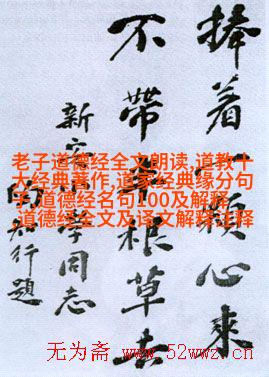 捧着顆心來
不帶半根草去
新安小學同志
知行題
老子道德经全文朗读,道教十
大经典著作,道家经典缘分句
子,道德经名句100及解释
道德经全文及译文解释注释
无为斋 www.52wwz.cn